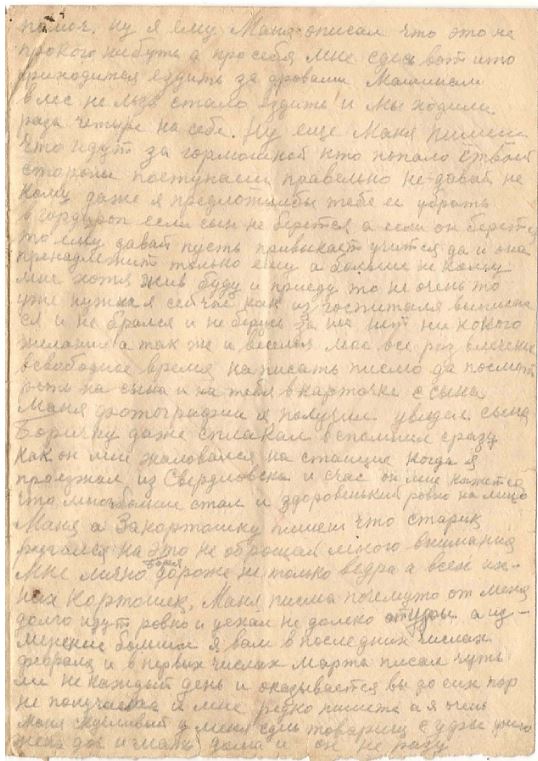 помоч. ну я ему Маня описал что это не
прокого нибуть а просебя мне сдесь вот што
приходится ездить за дровами Машинами
влес не льзь стало ездить и мы ходили
раза четыре на себе. Ну еще Маня пишеш
что идут за гормошкой кто попало
стороны поступаеш правельно не давай не
кому даже я предлотилбы тебе ее убрать
в гордироп если сын не берется а если он берется
то ему давай пусть привыкает учится да и она
принадлежит только ему а больше не кому
мне хотя жив буду и приеду то не очень то
уже нужна я сейчас как из госпиталя выписал
ся и не брался и не берусь за нее нет ни какого
желания а так же и веселья мое все раз влечение
свободное время написать писмо да посмотр
реть на сына и на тебя в карточке с сына
Маня фотографии я получил увидел сына
Боричку даже сплакал вспомнил сразу
как он мне жаловался на станцие когда я
проезжал из Свердловска и счас он мне кажется
что много больше стал и здоровинький ровно на лицо
Маня а Закортошку пишеш что старик
ругался на это не оброщай много внимания
Мне лично Боря дороже не только ведра а всех их-
ней кортошек, Маня писма почемуто от меня
долго идут ровно и уехал не долеко от Уфы а из-
менение большое я вам в последних числах
февраля и в первых числах марта писал чуть
ли не каждый день и оказывается вы до сих пор
не получаете и мне редко пишете а я очень
Маня скучливый у меня есть товарищ с Уфы у него
жена доч и мать дома и он не разу